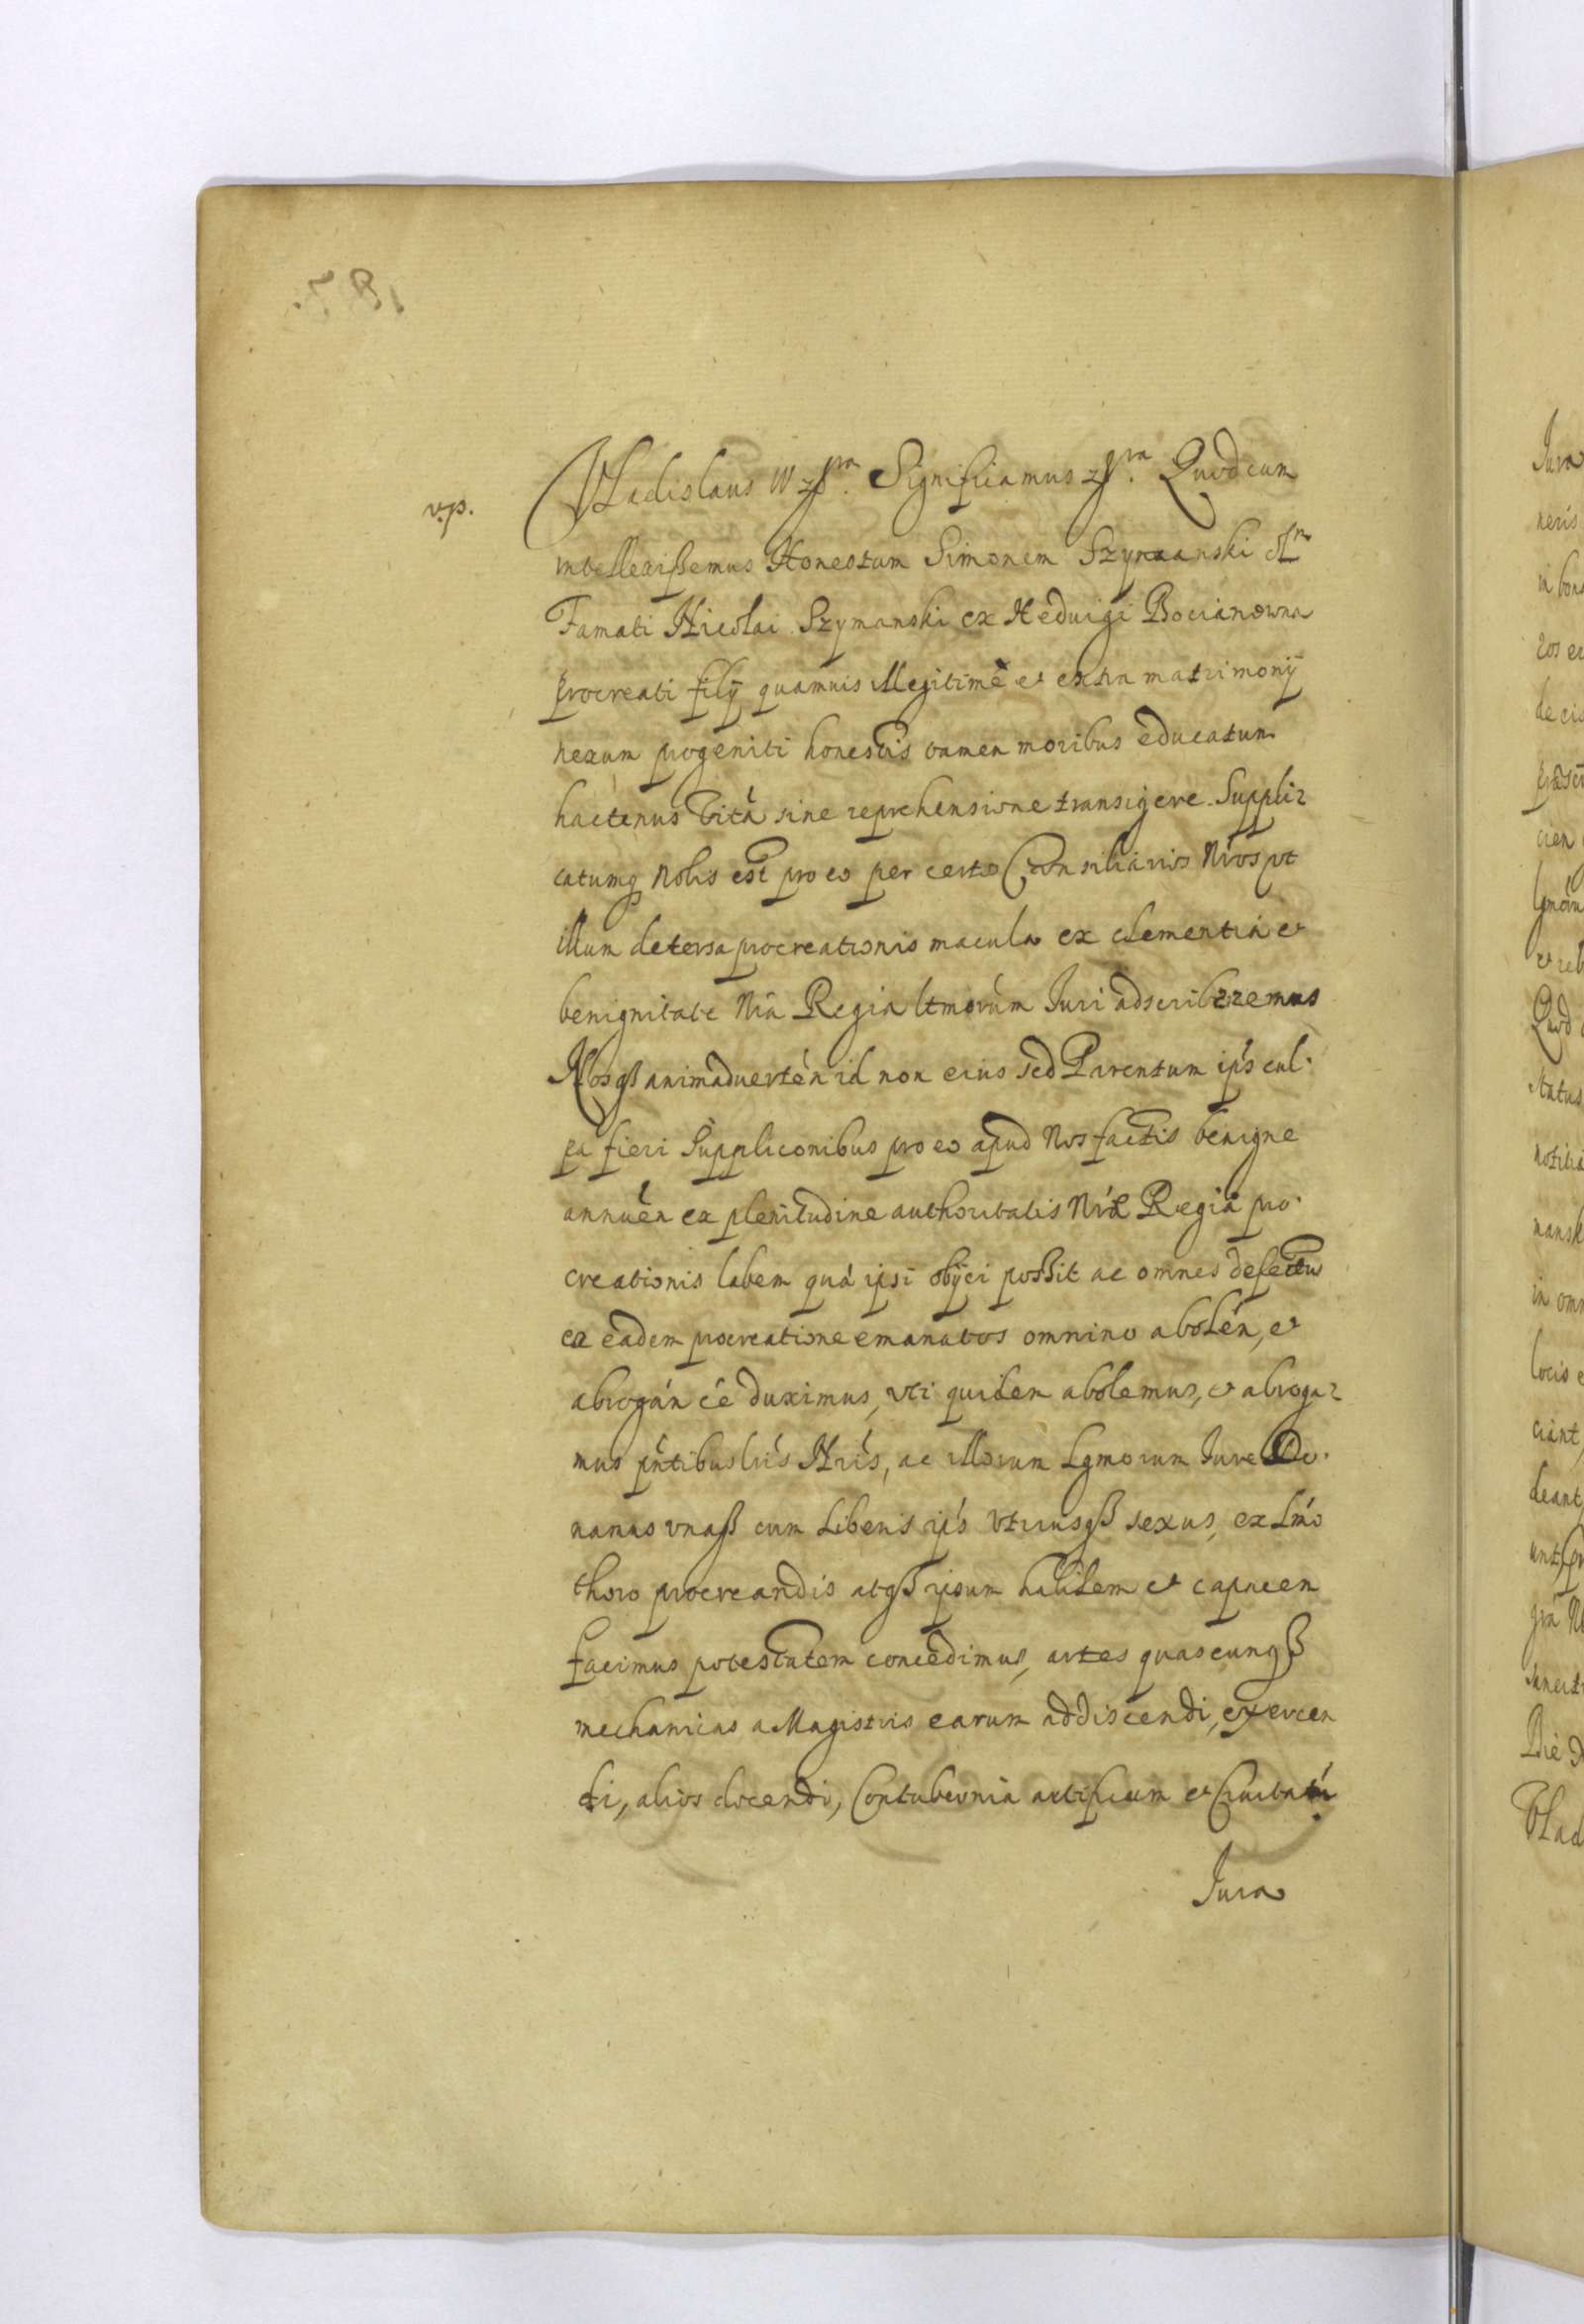 v.p.
Vladislaus IV zß.ra Significamus zß.ra Quod cum
intellexissemus Honestum Simonem Szymanski olim
Famati Nicolai Szymanski ex Heduigi Bocianowna
procreati filij quamuis illegitimè et extra matrimonij
nexum progeniti honestis tamen moribus educatum
hactenus vitá sine reprehensione transigere. Suppli-
catumq Nobis est pro eo per certos Consiliarios Nŕos vt
illum detersa procreationis macula ex clementia et
benignitate Nrá Regia ltmorúm Iuri adscriberemus
Nos qß animaduertén id non eius sed Parentum ipś cul-
pa fieri Suppliconibus pro eo apud Nos factis benigne
annuén ex plenitudine authoritatis Nŕæ Regiæ pro-
creationis labem quá ipsi obijci possit ac omnes defectus
ex eadem procreatione emanatos omnino abolén, et
abrogán ée duximus, vti quidem abolemus, et abroga-
mus pńtibus lŕis Nŕis, ac illorum Lgmorum Iure Do-
namus vnaqß cum Liberis ipś vtriusqß sexus, ex Lmó
thoro procreandis atqß ipsum habilem et capacem
facimus potestatem concedimus, artes quascunqß
mechanicas a Magistris earum addiscendi, exercen
di, alios docendi, Contubernia artificum et Ciuitatú
Iura